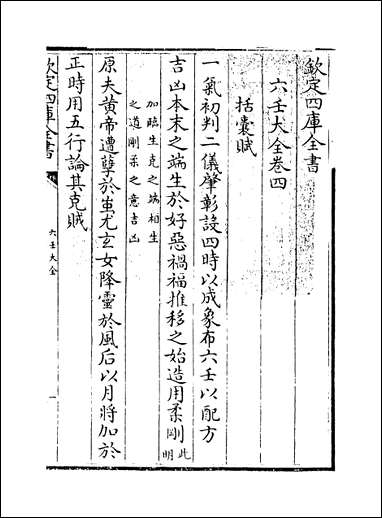 欽定四庫全書
六壬大全卷四
括囊賦
一氣初判二儀肇彰設四時以成象布六壬以配方
吉凶本末之端生於好惡禍福推移之始造用柔剛此明
加臨生克之端相生
之道剛柔之意吉凶
原夫黄帝遭孽於蚩尤玄女降靈於風后以月將加於
正時用五行論其克賊
欽定四庫全書
六壬大全
一